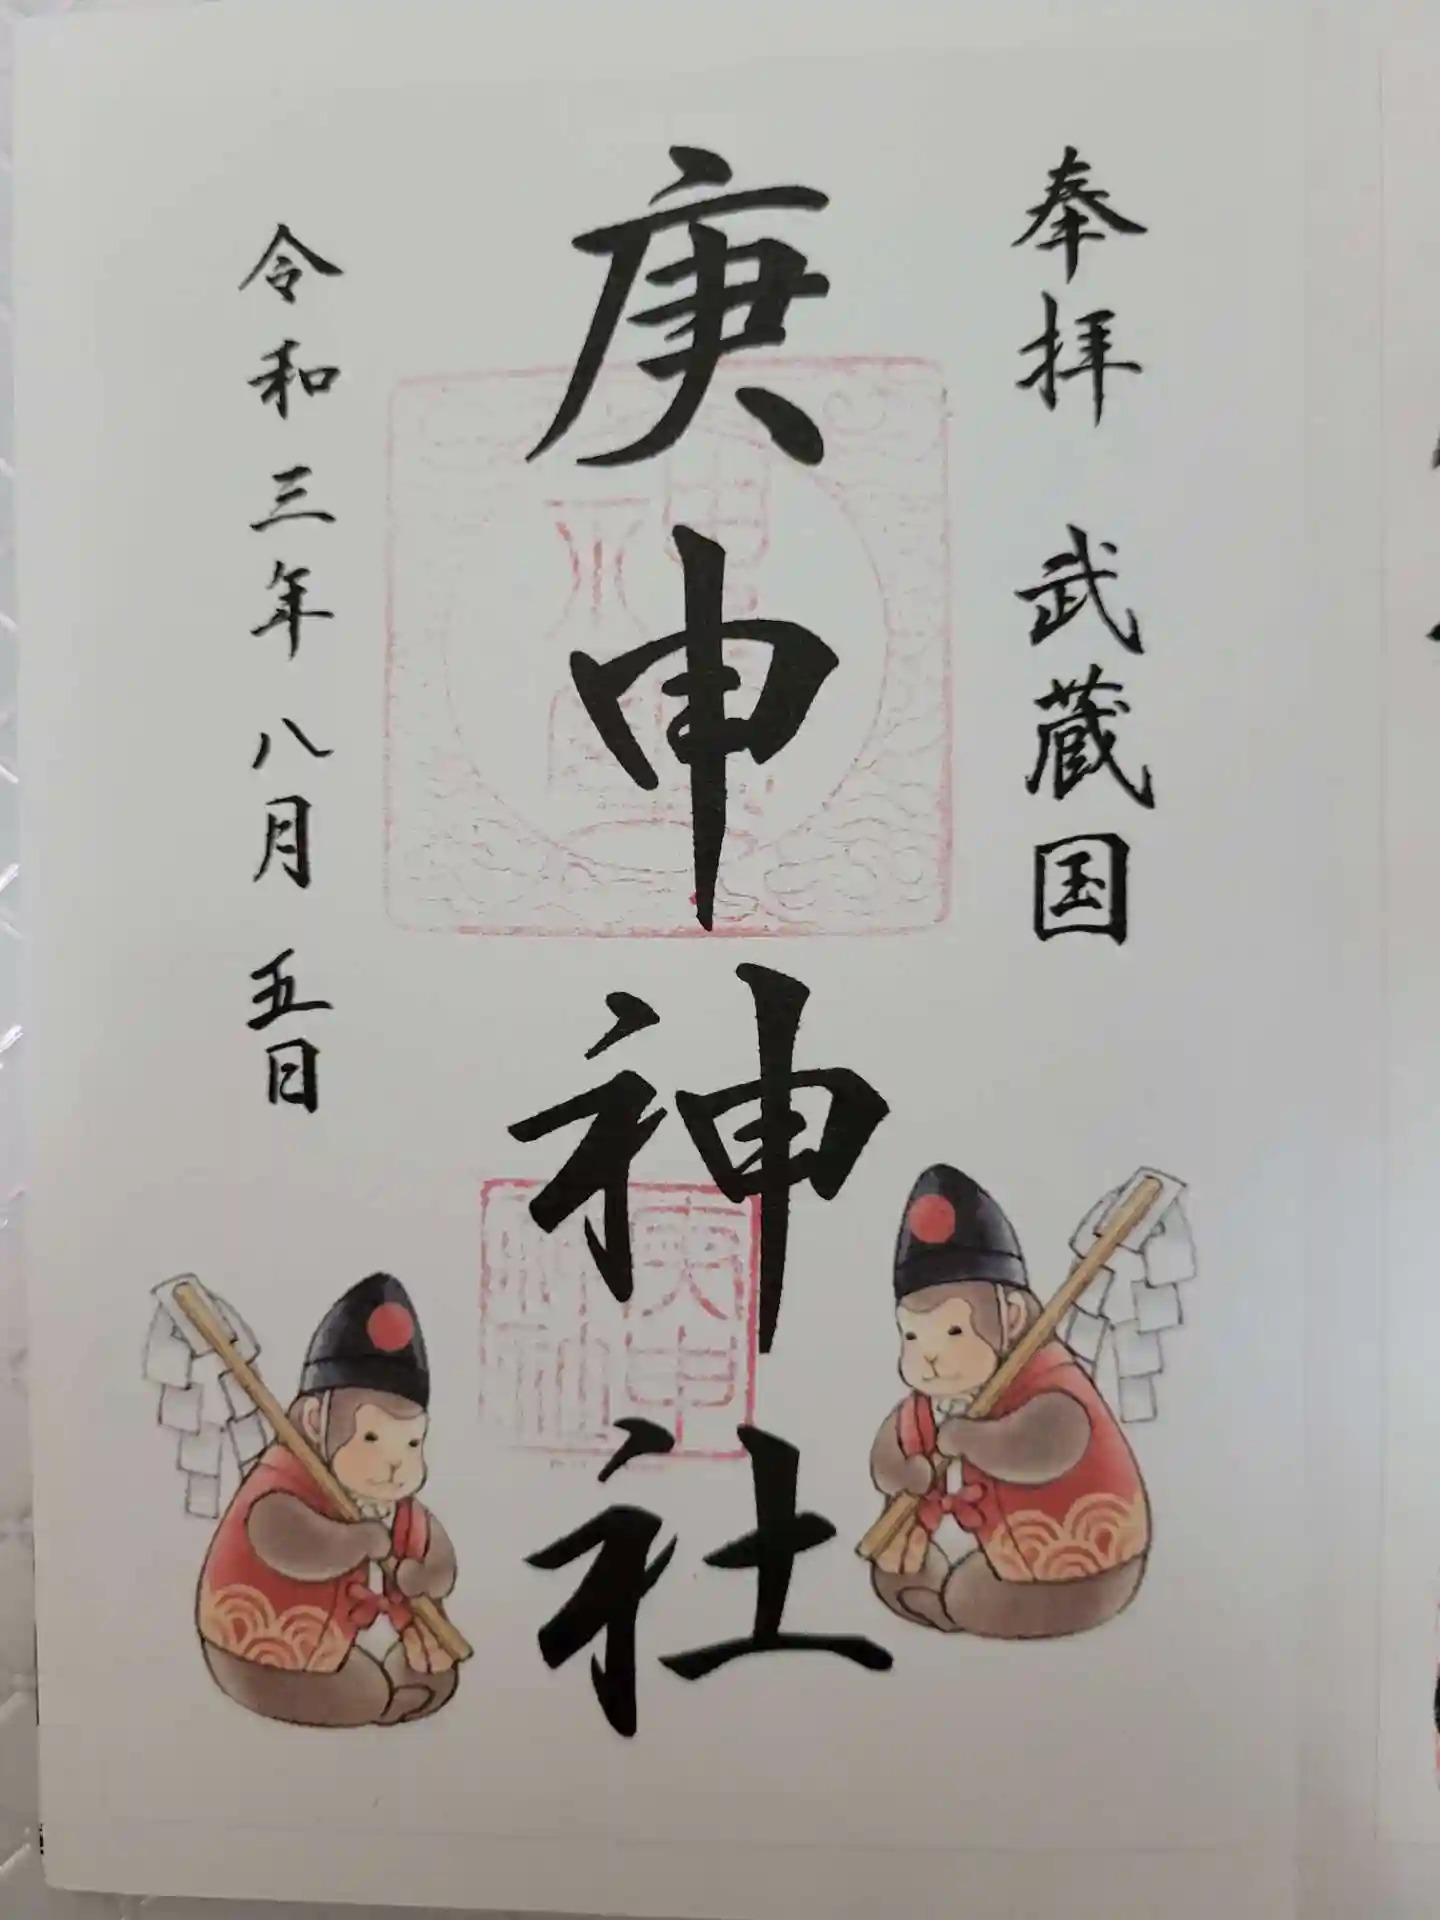 奉拝 武蔵国
庚申神社
令和三年 八月 五日